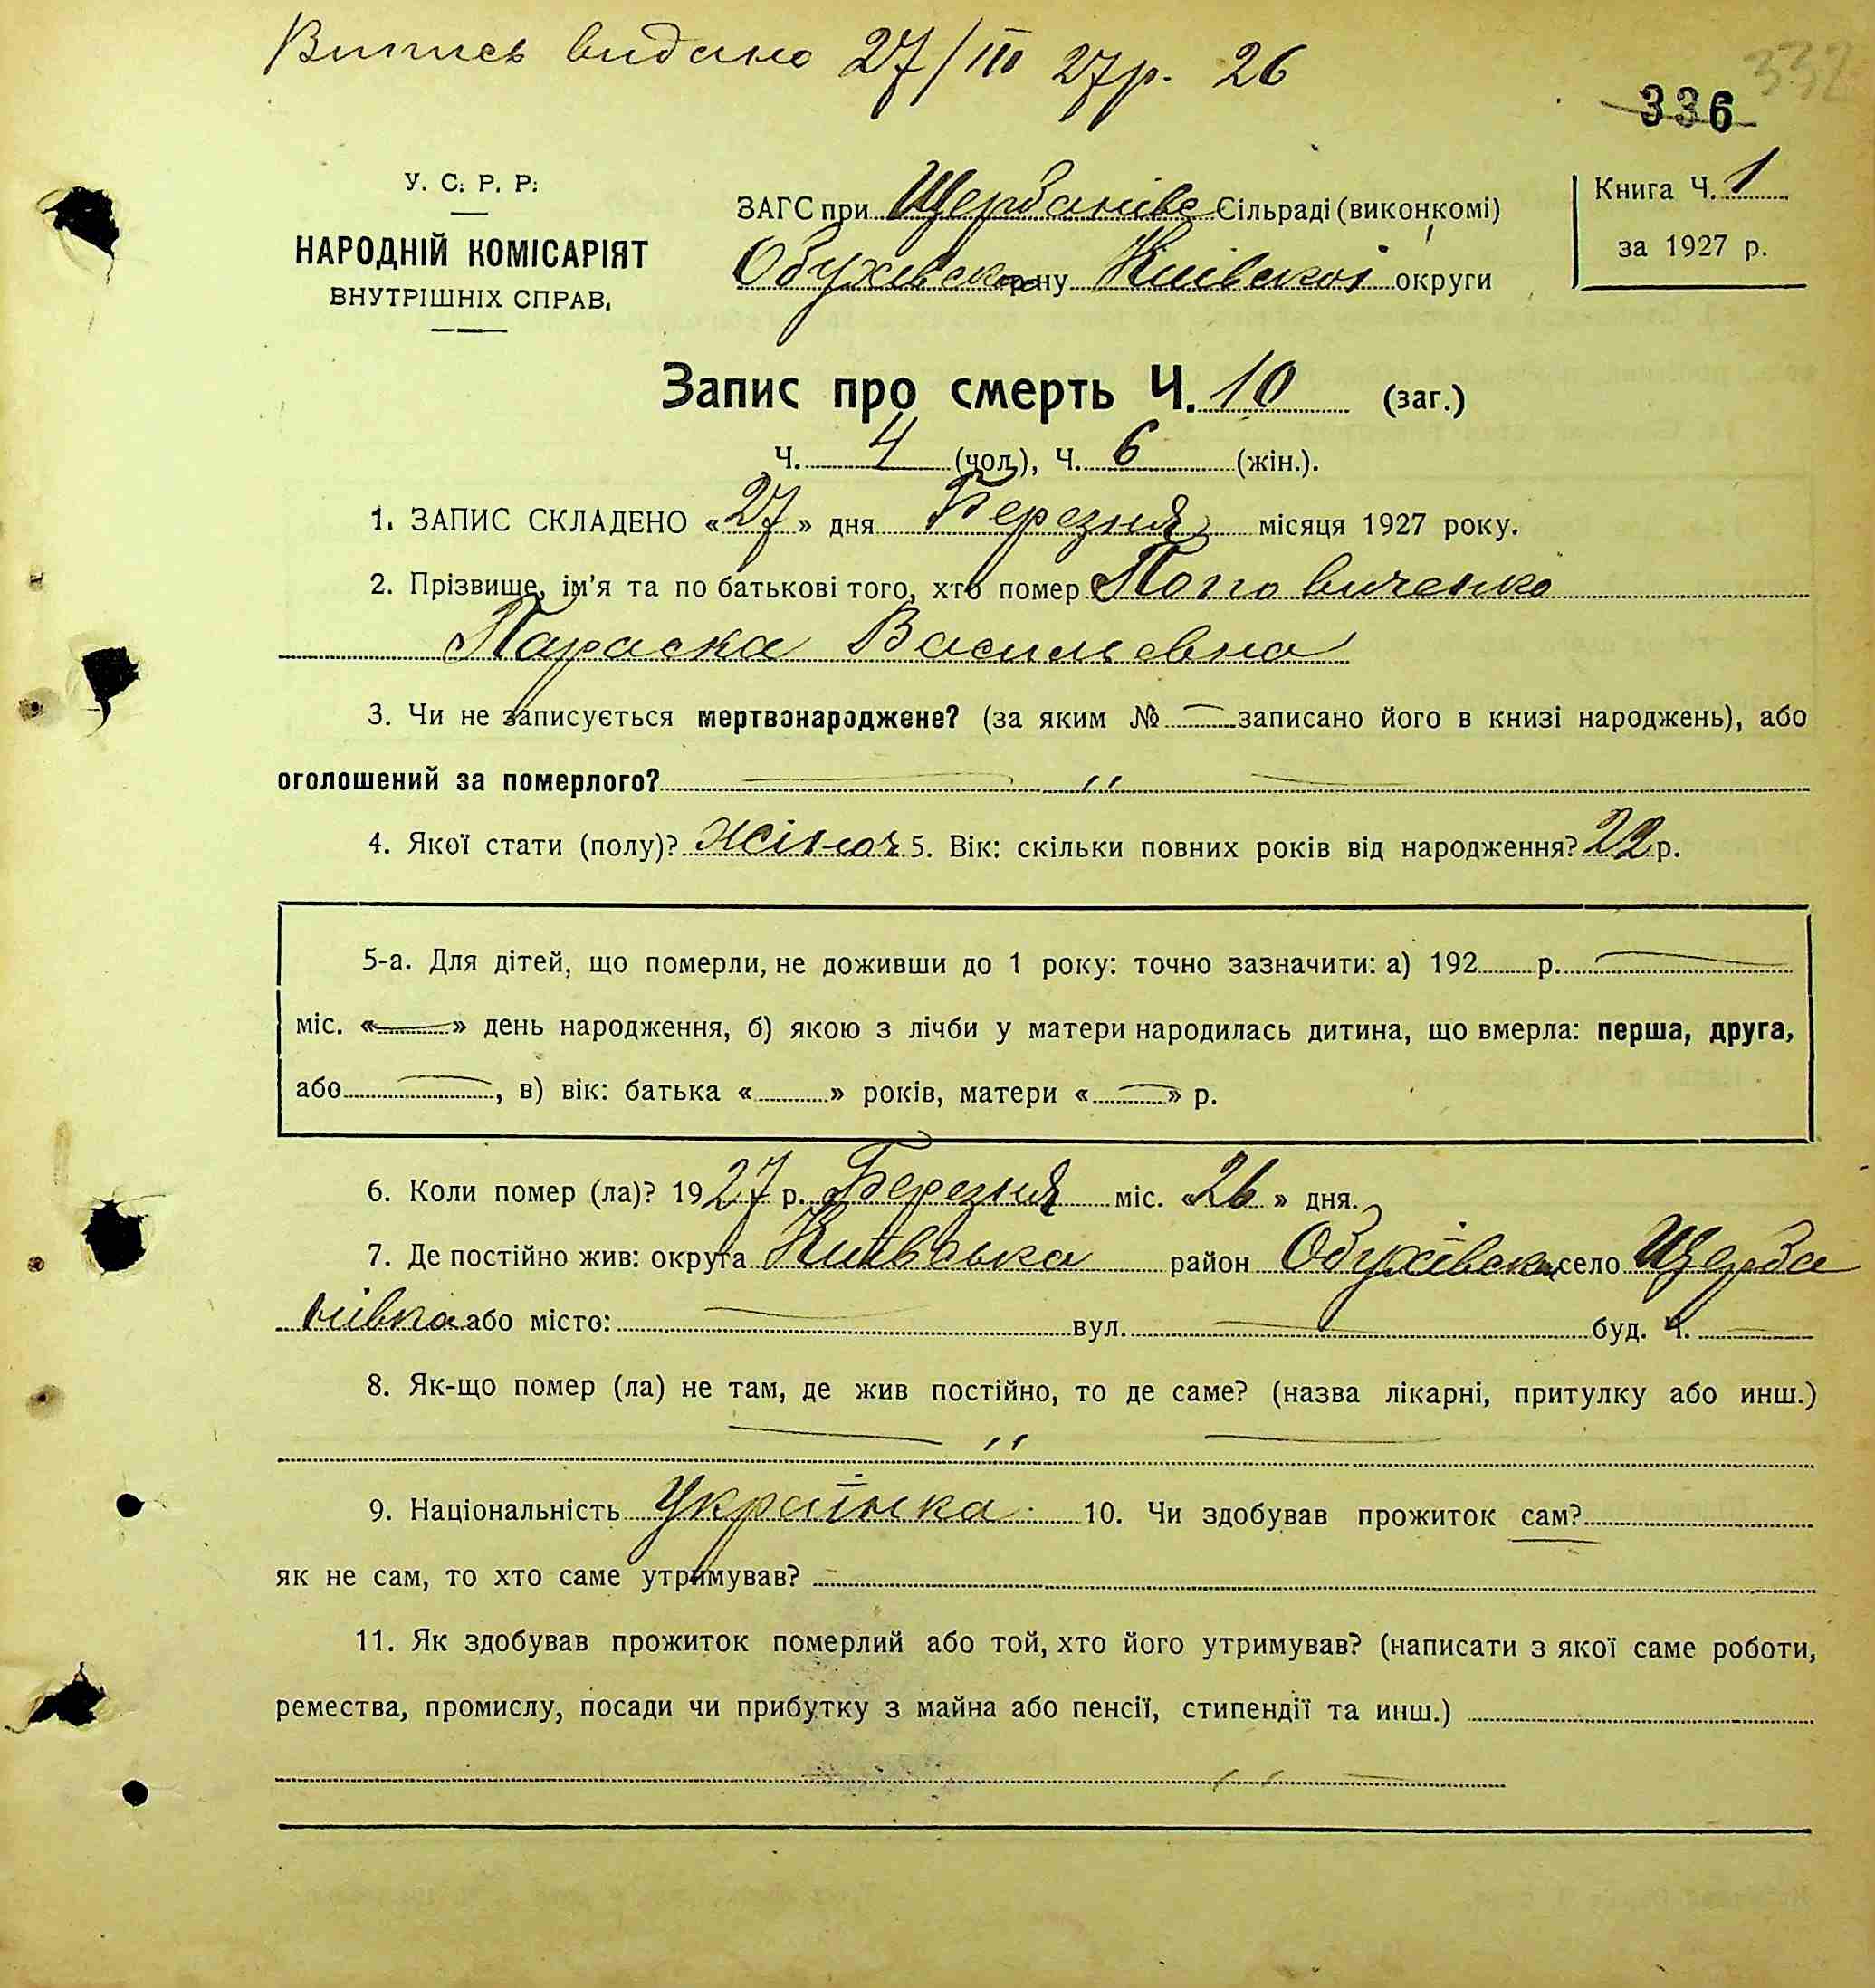 Випись видано 27/III 27р. 26
332
336
У. С. Р. Р.
НАРОДНІЙ КОМІСАРІЯТ
ВНУТРІШНІХ СПРАВ.
ЗАГС при Щербанівс Сільраді (виконкомі)
Обухівско рну Київскої округи
Книга Ч. 1
за 1927 р.
Запис про смерть Ч. 10 (заг.)
Ч. 4 (чол.), Ч. 6 (жін.).
1. ЗАПИС СКЛАДЕНО «27» дня Березня місяця 1927 року.
2. Прізвище, ім'я та по батькові того, хто помер Поповиченко
Параска Васильевна
3. Чи не записується мертвонароджене? (за яким № — записано його в книзі народжень), або
оголошений за померлого? —〃 —
4. Якої стати (полу)? жіноч 5. Вік: скільки повних років від народження? 22 р.
5-а. Для дітей, що померли, не доживши до 1 року: точно зазначити: а) 192 р. —
міс. «—» день народження, б) якою з лічби у матери народилась дитина, що вмерла: перша, друга,
або —, в) вік: батька « » років, матери «—» р.
6. Коли помер (ла)? 1927 р. Березня міс. «26» дня.
7. Де постійно жив: округа Київська район Обухівськ село Щерба
нівка або місто: — вул. — буд. Ч. —
8. Як-що помер (ла) не там, де жив постійно, то де саме? (назва лікарні, притулку або инш.)
— 〃 —
9. Національність Українка 10. Чи здобував прожиток сам?
як не сам, то хто саме утримував?
11. Як здобував прожиток померлий або той, хто його утримував? (написати з якої саме роботи,
ремества, промислу, посади чи прибутку з майна або пенсії, стипендії та инш.)
〃 —